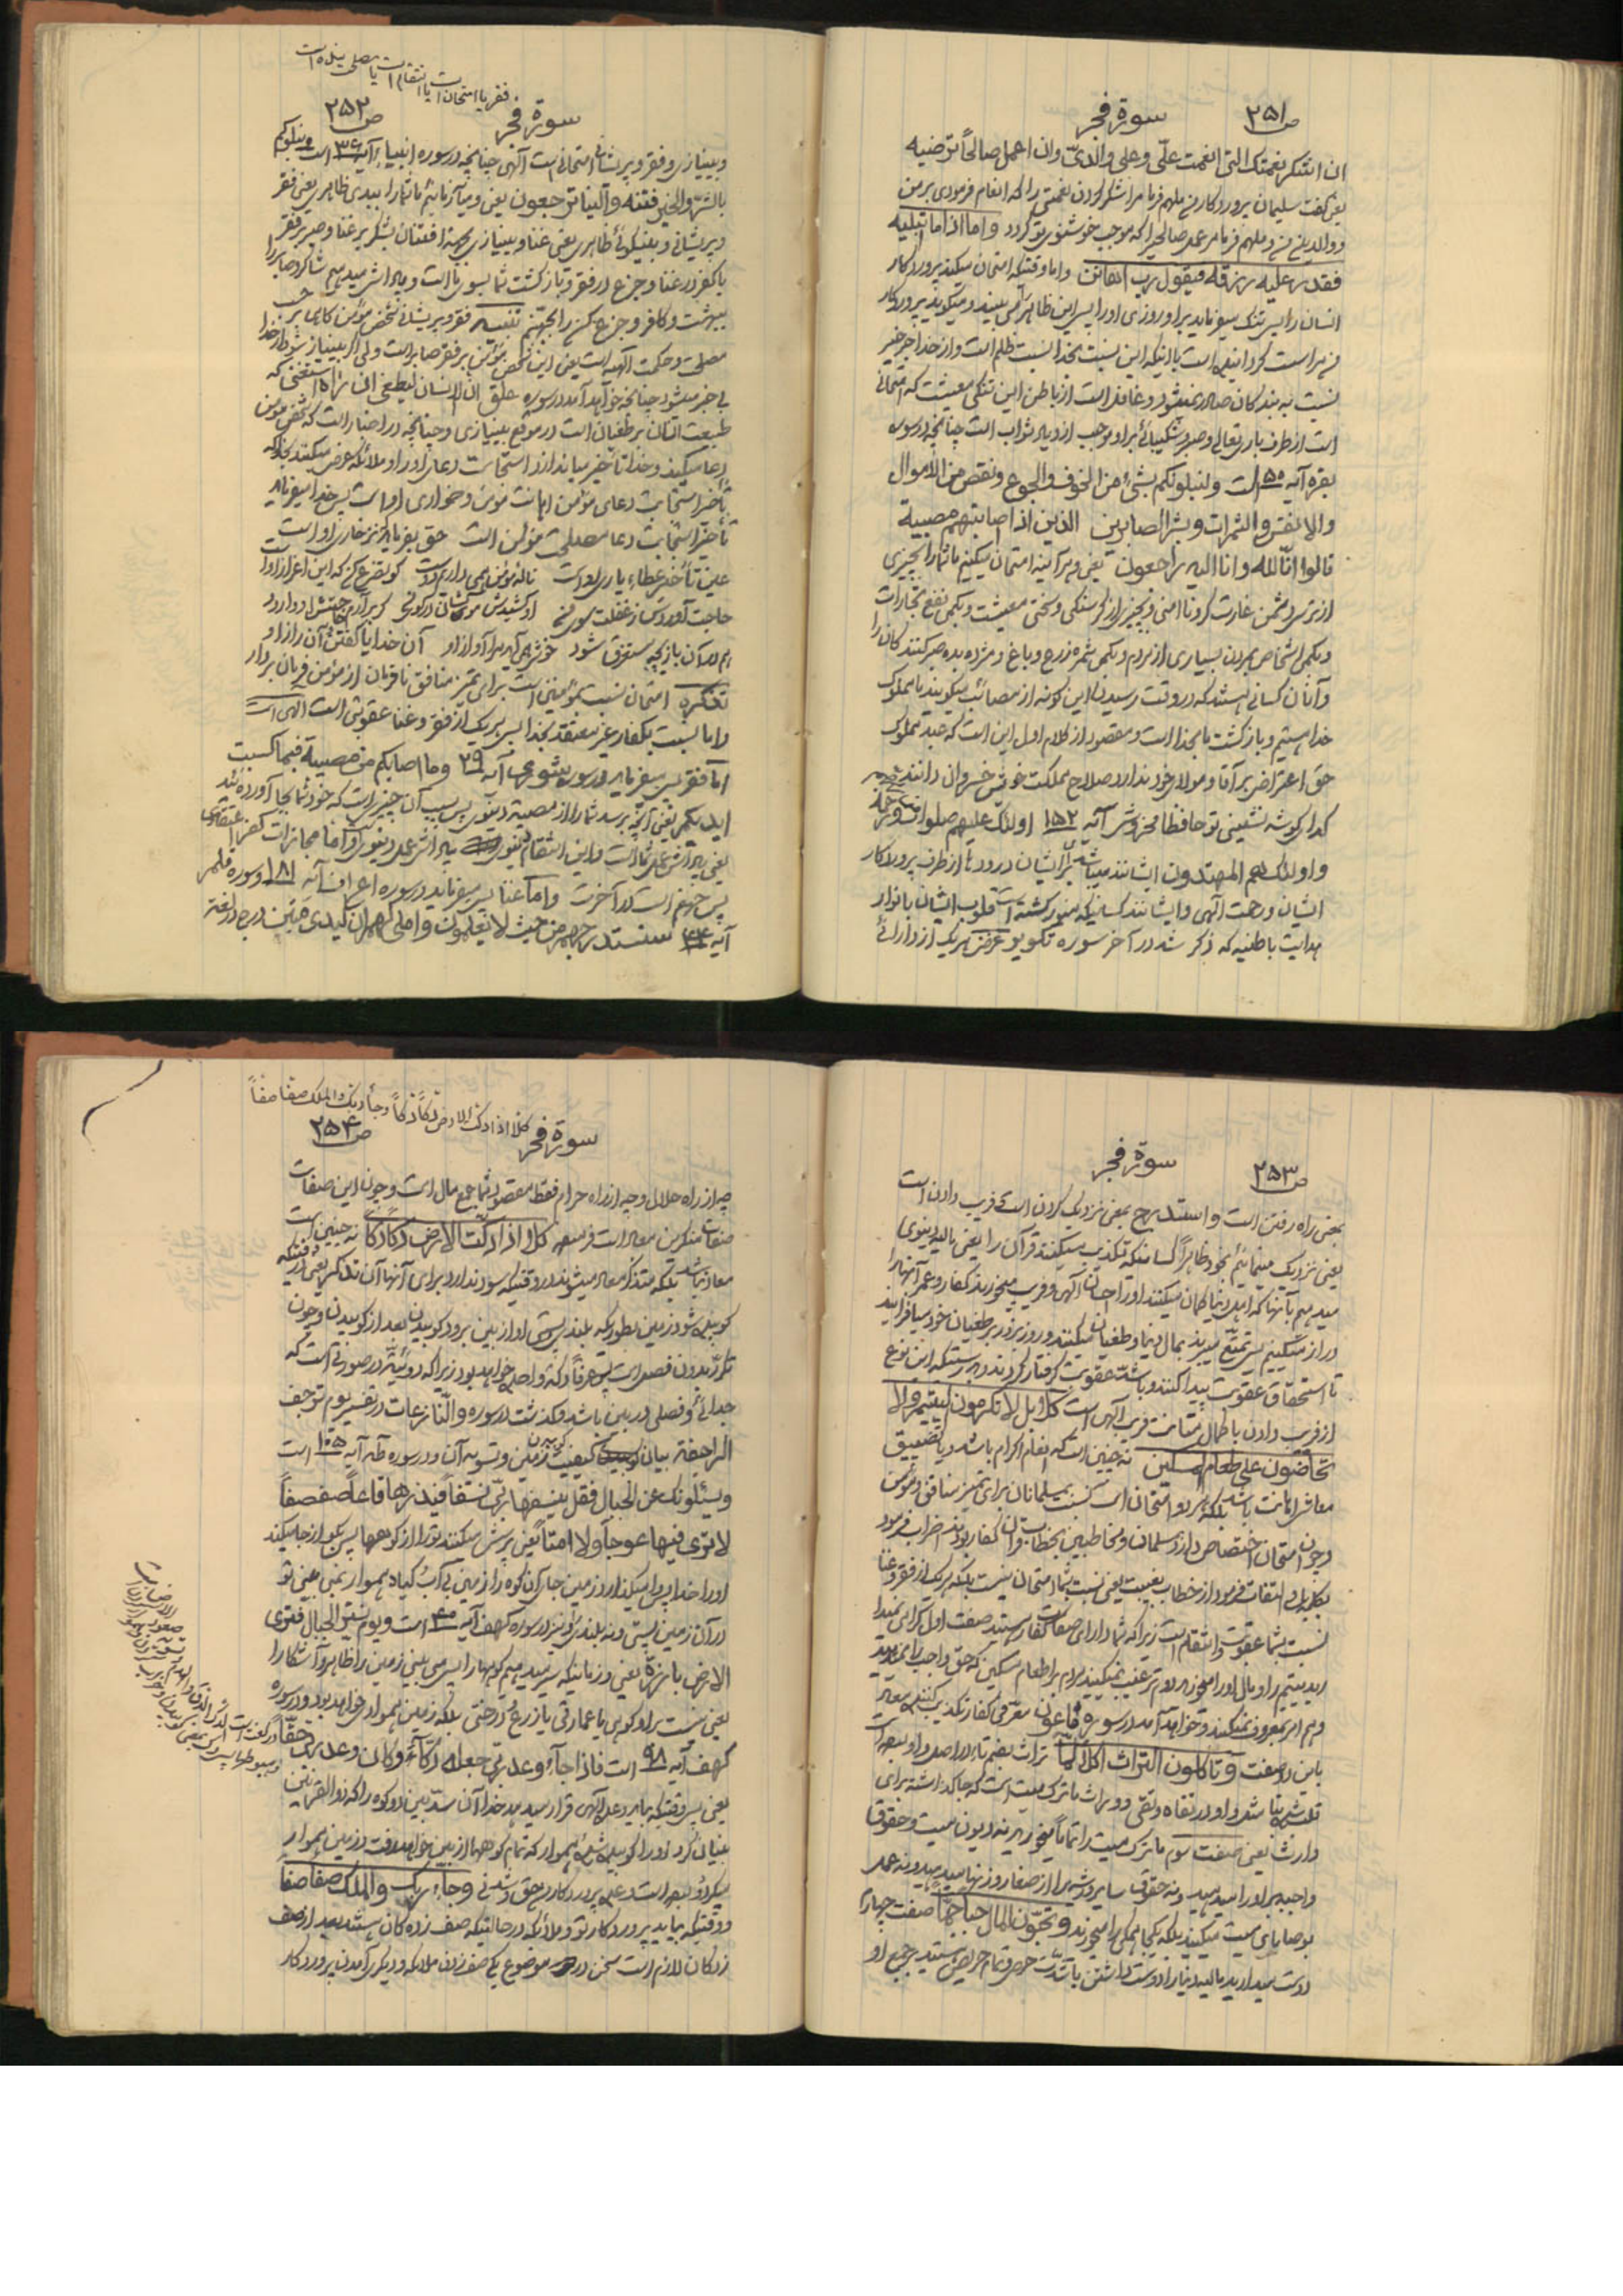 ص ۲۵۱
سورة فجر
ان اشکر نعمتک التی انعمت علّی و علی والدیّ وان اعمل صالحاً ترضیه
یعنی گفت سلیمان پروردگار من ملهم فرما مرا شکر کردن نعمتی را که انعام فرمودی بر من
و والدین من و ملهم فرما مرا عمل صالحیرا که موجب خوشنودی تو گردد و اما اذا ما ابتلیه
فقدر علیه رزقه فیقول ربی اهانن و اما وقتیکه امتحان میکند پروردگار
انسان را پس تنگ میفرماید بر او روزی او را پس این ظاهر می بیند و میگوید پروردگار
نسبت به بندگان صادر نمیشود و غافل است از باطن این تنگی معیشت که امتحانی
است از طرف باری تعالی و صبر و شکیبائی بر او موجب ازدیاد ثواب است چنانچه در سوره
بقره آیه ۱۵۰ است ولنبلونکم بشئ من الخوف والجوع ونقص من الاموال
والانفس والثمرات وبشر الصابرین الذین اذا اصابتهم مصیبة
قالوا انّا لله وانا الیه راجعون یعنی و هرآینه امتحان میکنیم ما شما را بچیزی
از ترس دشمن غارت کرد ناامنی و بچیزی از گرسنگی و سختی معیشت و بکمی نفع تجارات
و بکمی اشخاص بمردن بسیاری از مردم و بکمی ثمره زرع و باغ و مژده بده صبر کنندگان را
و آنان کسانی هستند که در وقت رسیدن این گونه از مصائب میگویند ما مملوک
خدا هستیم و بازگشت ما بخدا است و مقصود از کلام اول این است که عبد مملوک
حق اعتراض بر آقا و مولای خود ندارد صلاح مملکت خویش خسروان دانند
گدای گوشه نشینی تو حافظا مخروش آیه ۱۵۲ اولئک علیهم صلوات
و اولئک هم المهتدون ایشانند میباشد بر ایشان درودها از طرف پروردگار
ایشان و رحمت الهی و ایشانند کسانیکه منور گشته است قلوب ایشان بانوار
هدایت باطنیه که ذکر شد در آخر سوره تکویر غرض هر یک از دارائی
فقر یا امتحان است یا انتقام است یا مصلحی بنده است
سورة فجر
ص ۲۵۲
و بینیازی و فقر و پریشانی امتحانی است الهی چنانچه در سوره انبیاء آیه ۳۶ است و نبلوکم
بالشر والخیر فتنه والینا ترجعون یعنی و میآزمائیم ما شما را ببدی ظاهری یعنی فقر
و پریشانی و بنیکوئی ظاهری یعنی غنا و بینیازی بجهة افتتان بشکر بر غنا و صبر بر فقر
یا کفر در غنا و جزع در فقر و بازگشت شما بسوی ما است و پاداش میدهیم شاکر و صابر را
ببهشت و کافر و جزع کن را بجهنم تنبیه فقر و پریشانی شخص مؤمن گاهی بر حسب
مصلحت و حکمت الهیه است یعنی این شخص مؤمن بر فقر صابر است ولی اگر بینیاز شود از خدا
بی خبر میشود چنانچه خواهد آمد در سوره علق ان الانسان لیطغی ان رآه استغنی که
طبیعت انسان بر طغیان است در موقع بینیازی و چنانچه در اخبار است که شخص مؤمن
دعا میکند و خدا تأخیر میاندازد استجابت دعای او را و ملائکه عرض میکنند بخدا که
تأخیر استجابت دعای مؤمن اهانت مؤمن و خواری او است پس خدا میفرماید
تأخیر استجابت دعا مصلحت مؤمن است حق بفرماید که نز خاری او است
عین تأخیر عطاء یاری او است ناله مؤمن همی داریم دوست گو تضرع کن که این اعزاز اوست
حاجت آوردش ز غفلت سوی من آن کشیدش مو کشان در کوی من گر برآرم حاجتش او وا رود
هم در آن بازیچه مستغرق شود خوش همی آید مرا آواز او آن خدایا گفتن و آن راز او
تذکره امتحان نسبت بمؤمنین است برای تمیز منافق نافرمان از مؤمن فرمان بردار
و اما نسبت بکفار غیر معتقد بخدا پس هر یک از فقر و غنا عقوبتی است الهی است
اما فقر پس میفرماید در سوره شوری آیه ۲۹ وما اصابکم من مصیبة فبما کسبت
ایدیکم یعنی آنچه برسد شما را از مصیبة دنیوی پس بسبب آن چیزیست که خود شما بجا آورده اید
یعنی پاداش عمل شما است و این انتقام دنیوی پاداش عمل دنیوی و اما مجازات کفر اعتقادی
پس جهنم است در آخرت و اما غنا پس میفرماید در سوره اعراف آیه ۱۸۱ و سوره قلم
آیه ۴۴ سنستدرجهم من حیث لایعلمون واملی لهم ان کیدی متین درج در لغة
ص ۲۵۳
سورة فجر
بمعنی راه رفتن است و استدرج بمعنی نزدیک کردن است و فریب دادن است
یعنی نزدیک مینمائیم بخود ظاهراً کسانیکه تکذیب میکنند قرآن را یعنی مالیه دنیوی
میدهیم بآنها که اهل دنیا گمان میکنند او را احسان الهی و فریب میخورند کفار و عمر آنها را
دراز میکنیم پس تمتع میبرند بمال دنیا و طغیان میکنند و روز بروز بر طغیان خود میافزایند
تا استحقاق عقوبت پیدا کنند و باشدّ عقوبت گرفتار گردند بدرستیکه این نوع
از فریب دادن با کمال متانت فریب الهی است کلا بل لاتکرمون الیتیم ولا
تحاضون علی طعام المسکین نه چنین است که انعام اکرام باشد و یا تضییق
معاش اهانت باشد بلکه هر دو امتحان است نسبت بمسلمانان برای تمیز منافق و مؤمن
و چون امتحان اختصاص دارد بمسلمان و مخاطبین بخطابات قرآن کفار بودند اضراب فرمود
بکلمه بل و التفات فرمود از خطاب بغیبت یعنی نسبت بشما امتحان نیست بلکه هر یک از فقر و غنا
نسبت بشما عقوبت و انتقام است زیرا که شما دارای صفات کفار هستید صفت اول گرامی نمیدا
رید یتیم را و مال او را میخورید دوم ترغیب نمیکنید مردم را بر اطعام مسکین که حق واجب را نمیدهید
و هم امر بمعروف نمیکنید و خواهد آمد در سوره ماعون معرفی کفار تکذیب کنند معاد
باین دو صفت و تاکلون التراث اکلاً لمّا تراث بضم تاء در اصل واو بوده است
وارث یعنی صفت سوم ماترک میت را تماماً میخورید نه دیون میت و حقوق
واجبه بر او را میدهید و نه حقوق سایر ورثه را از صغار و زنها میدهید و نه عمل
بوصایای میت میکنید بلکه یکجا همگی را میخورید و تحبّون المال حباً جمّاً صفت چهارم
دوست میدارید مالیه دنیا را دوست داشتن باشدّت حرص و تمام حریص هستید بجمع او
کلا اذا دکت الارض دکاً دکاً وجاء ربک والملک صفا صفاً
سورة فجر
ص ۲۵۴
چه از راه حلال و چه از راه حرام فقط مقصود شما جمع مال است و چون این صفات
صفات منکرین معاد است فرمود کلا اذا دکت الارض دکاً دکاً نه چنین است
معاد نباشد بلکه متذکر معاد میشوند در وقتیکه سود ندارد برای آنها آن تذکر یعنی در وقتیکه
کوبیده شود زمین بطوریکه بلندی پستی او از بین برود کوبیدن بعد از کوبیدن و چون
تکرّر بدون فصل است پس عرفاً دکه واحده خواهد بود زیرا که دوئیّة در صورتی است که
جدائی و فصلی در بین باشد و گذشت در سوره والنّازعات در تفسیر یوم ترجف
الراجفة بیان کیفیت کوبیدن زمین و تسویه آن و در سوره طه آیه ۱۰۵ است
ویسئلونک عن الجبال فقل ینسفها ربی نسفاً فیذرها قاعاً صفصفاً
لاتری فیها عوجاً ولا امتاً یعنی پرسش میکنند تو را از کوهها پس بگو از جا میکند
او را خدا پس وا میگذارد زمین جای آن کوه را زمین بی آب گیاه هموار نمی بینی تو
در آن زمین پستی و نه بلندی و نیز در سوره کهف آیه ۴۶ است و یوم نسیّر الجبال و تری
الارض بارزة یعنی و زمانیکه سیر میدهیم کوهها را پس می بینی زمین را ظاهر و آشکارا
یعنی نیست بر او کوهی یا عمارتی یا زرع و درختی بلکه زمین هموار خواهد بود و در سوره
کهف آیه ۹۸ است فاذا جاء وعد ربی جعله دکّاء وکان وعد ربی حقّاً
یعنی پس وقتیکه بیاید وعد الهی قرار میدهد خدا آن سدّ بین دو کوه را که ذوالقرنین
بنیان کرد او را کوبیده شده هموار که تمام کوهها از بین خواهد رفت و زمین هموار
میگردد و بوده است وعده پروردگار من حق و شدنی وجاء ربک والملک صفا صفاً
و وقتیکه بیاید پروردگار تو و ملائکه در حالتیکه صف زده گان هستند بعد از صف
زدگان لازم است سخن در دو موضوع یکی صف زدن ملائکه و دیگر آمدن پروردگار